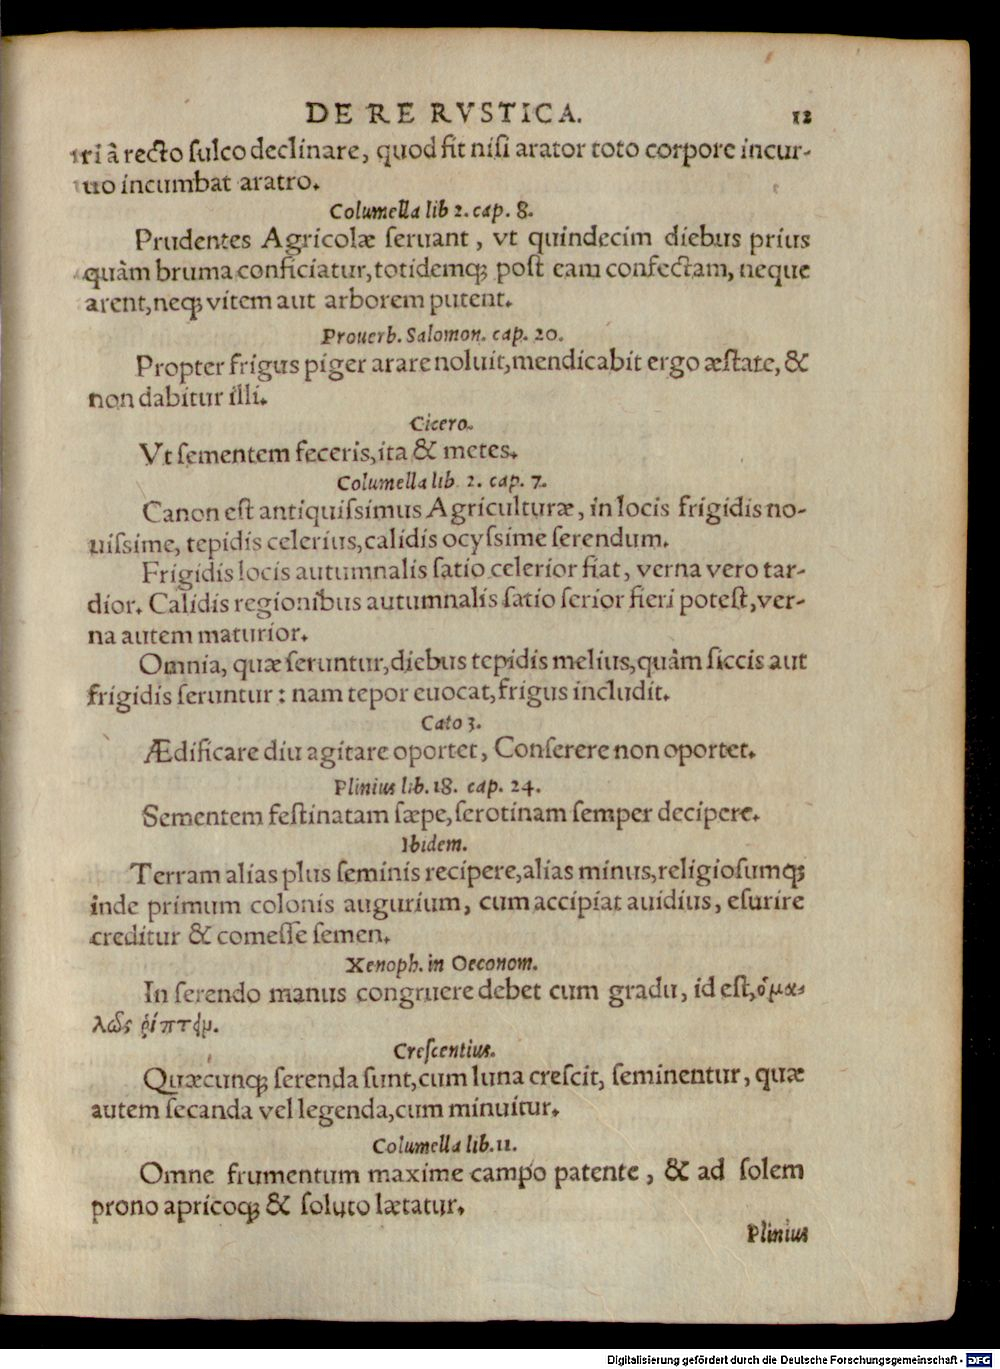 DE RE RVSTICA. 12
tri â recto sulco declinare, quod fit nisi arator toto corpore incur-
uo incumbat aratro.
Columella lib 2. cap. 8.
Prudentes Agricolæ seruant, vt quindecim diebus prius
quàm bruma conficiatur, totidemq; post eam confectam, neque
arent, neq; vitem aut arborem putent.
Prouerb. Salomon. cap. 20.
Propter frigus piger arare noluit, mendicabit ergo æstate, &
non dabitur illi.
Cicero.
Vt sementem feceris, ita & metes.
Columella lib. 2. cap. 7.
Canon est antiquissimus Agriculturæ, in locis frigidis no-
uissime, tepidis celerius, calidis ocyssime serendum.
Frigidis locis autumnalis satio celerior fiat, verna vero tar-
dior. Calidis regionibus autumnalis satio serior fieri potest, ver-
na autem maturior.
Omnia, quæ seruntur, diebus tepidis melius, quàm siccis aut
frigidis seruntur: nam tepor euocat, frigus includit.
Cato 3.
Ædificare diu agitare oportet, Conserere non oportet.
Plinius lib. 18. cap. 24.
Sementem festinatam sæpe, serotinam semper decipere.
Ibidem.
Terram alias plus seminis recipere, alias minus, religiosumq;
inde primum colonis augurium, cum accipiat auidius, esurire
creditur & comesse semen.
Xenoph. in Oeconom.
In serendo manus congruere debet cum gradu, id est, ὁμα-
λῶς ῥίπτειν.
Crescentius.
Quæcunq; serenda sunt, cum luna crescit, seminentur, quæ
autem secanda vel legenda, cum minuitur.
Columella lib. 11.
Omne frumentum maxime campo patente, & ad solem
prono apricoq; & soluto lætatur.
Plinius
Digitalisierung gefördert durch die Deutsche Forschungsgemeinschaft - DFG